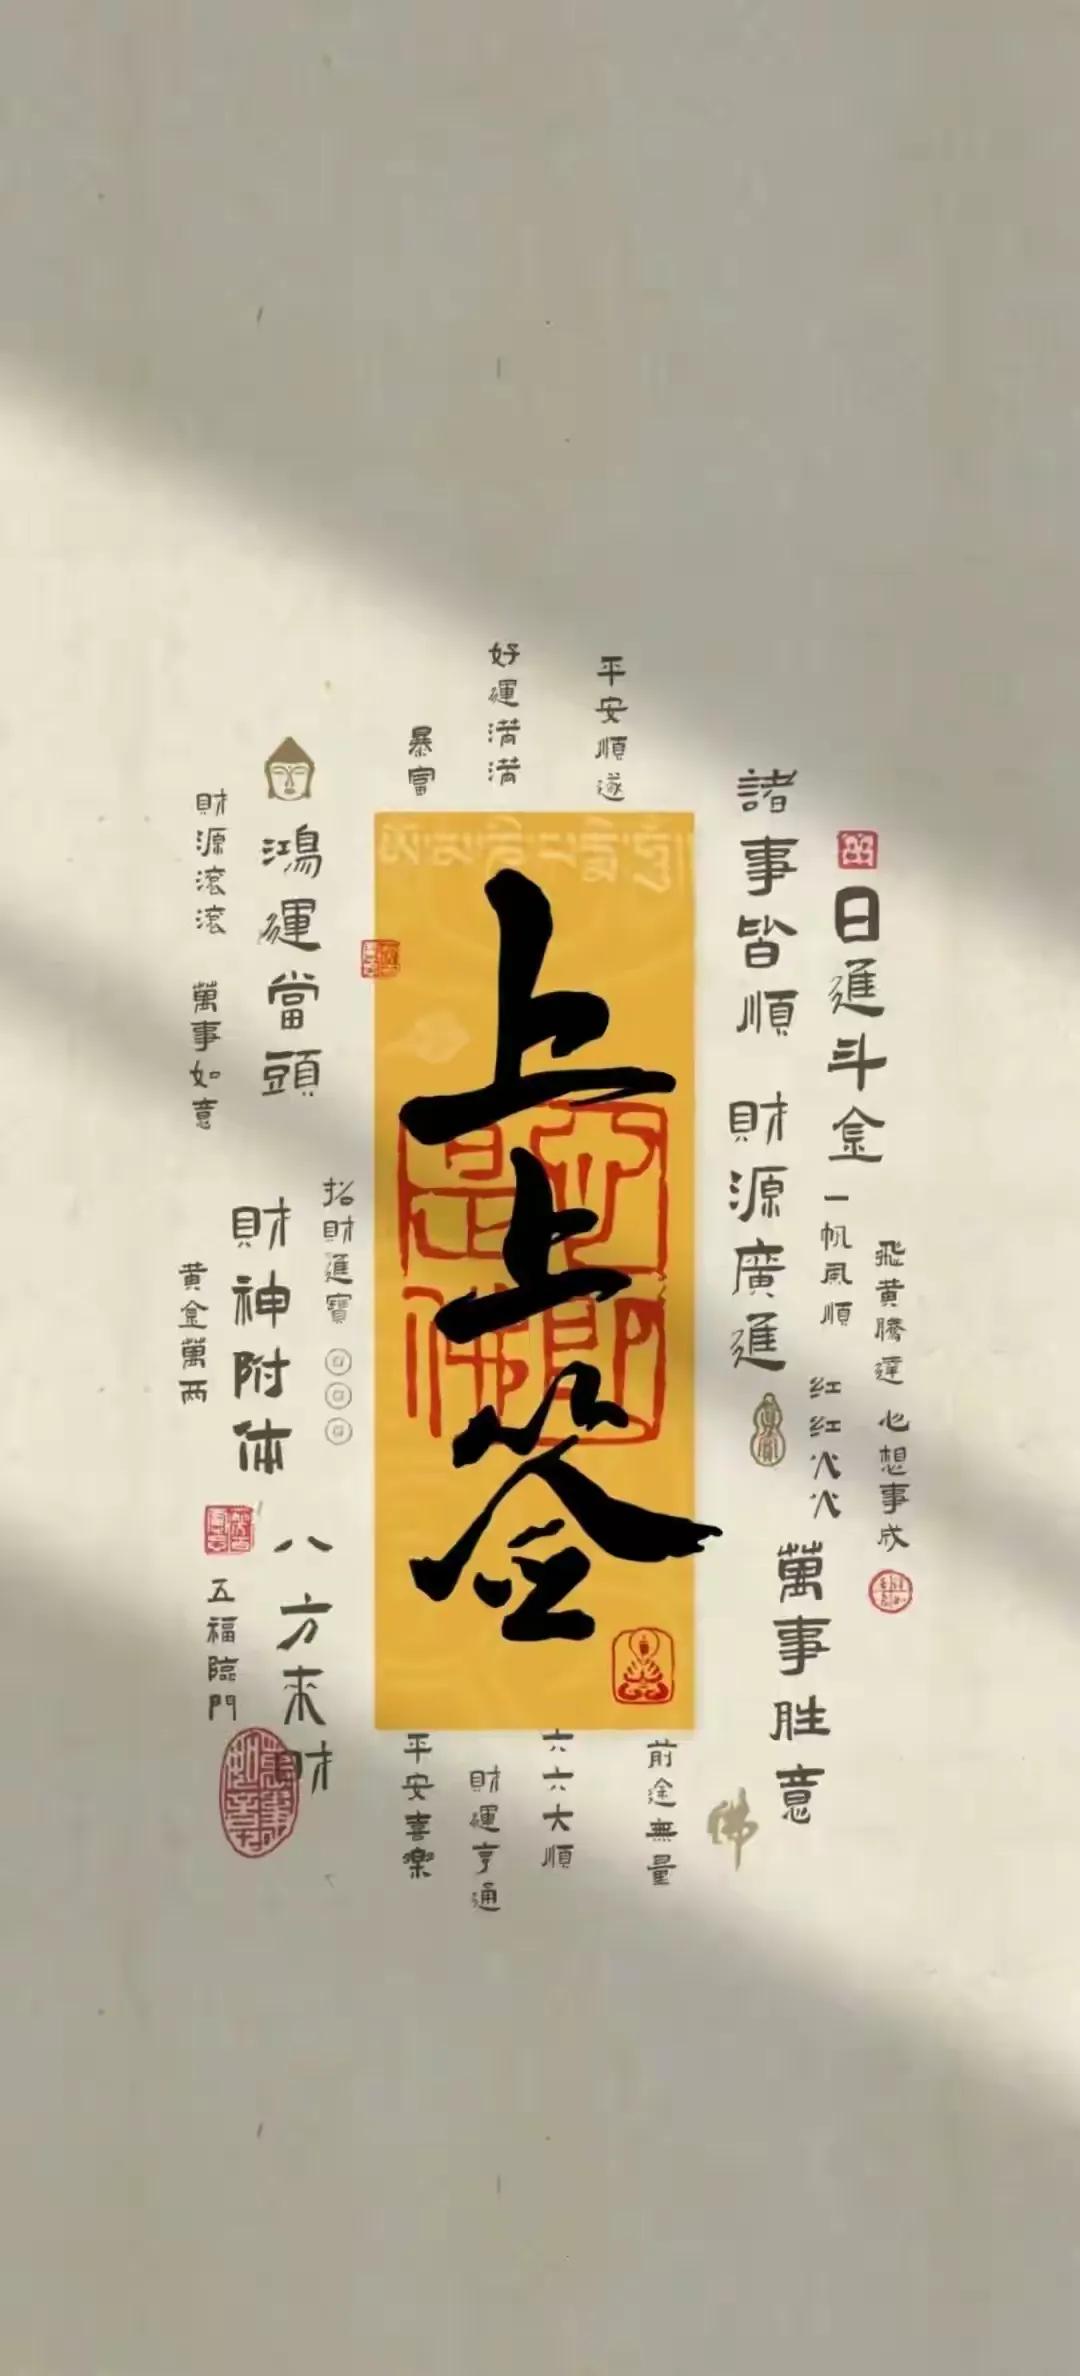 上上签
好運满满
平安順遂
暴富
諸事皆順
財源廣進
日進斗金
一帆風順
飛黄騰達
心想事成
红红火火
萬事胜意
鴻運當頭
財源滚滚
萬事如意
招財進寶
財神附体
黄金萬两
八方来財
五福臨門
平安喜樂
財運亨通
六六大順
前途無量
佛